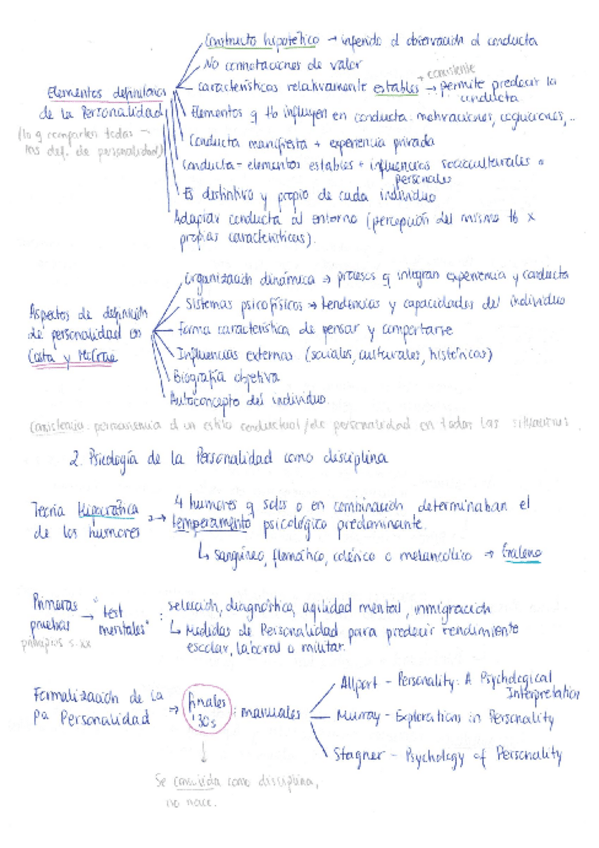 Constructo hipotético → inferido d observación d conducta
No connotaciones de valor
+ consistente
características relativamente estables → permite predecir la
conducta
Elementos definitorios
de la Personalidad
(lo q comparten todas
las def. de personalidad)
Elementos q tb influyen en conducta: motivaciones, cogniciones,..
Conducta manifiesta + experiencia privada
conducta = elementos estables + influencias socioculturales o
personales
Es distintivo y propio de cada individuo
Adaptar conducta al entorno (percepción del mismo tb x
propias características).
Aspectos de definición
de personalidad en
Costa y McCrae
Organización dinámica → procesos q integran experiencia y conducta
Sistemas psicofísicos → tendencias y capacidades del individuo
Forma característica de pensar y comportarse
Influencias externas (sociales, culturales, históricas)
Biografía objetiva
Autoconcepto del individuo.
Consistencia: permanencia d un estilo conductual/de personalidad en todas las situaciones.
2. Psicología de la Personalidad como disciplina
Teoría Hipocrática
de los humores
→ 4 humores q solos o en combinación determinaban el
temperamento psicológico predominante.
↳ sanguíneo, flemático, colérico o melancólico → Galeno
Primeras
pruebas
principios s. XX
→ "test
mentales" :
selección, diagnóstico, agilidad mental, inmigración
↳ Medidas de Personalidad para predecir rendimiento
escolar, laboral o militar.
Formalización de la
Pª Personalidad
→ finales
'30s
: manuales
Allport - Personality: A Psychological
Interpretation
Murray - Explorations in Personality
Stagner - Psychology of Personality
Se consolida como disciplina,
no nace.